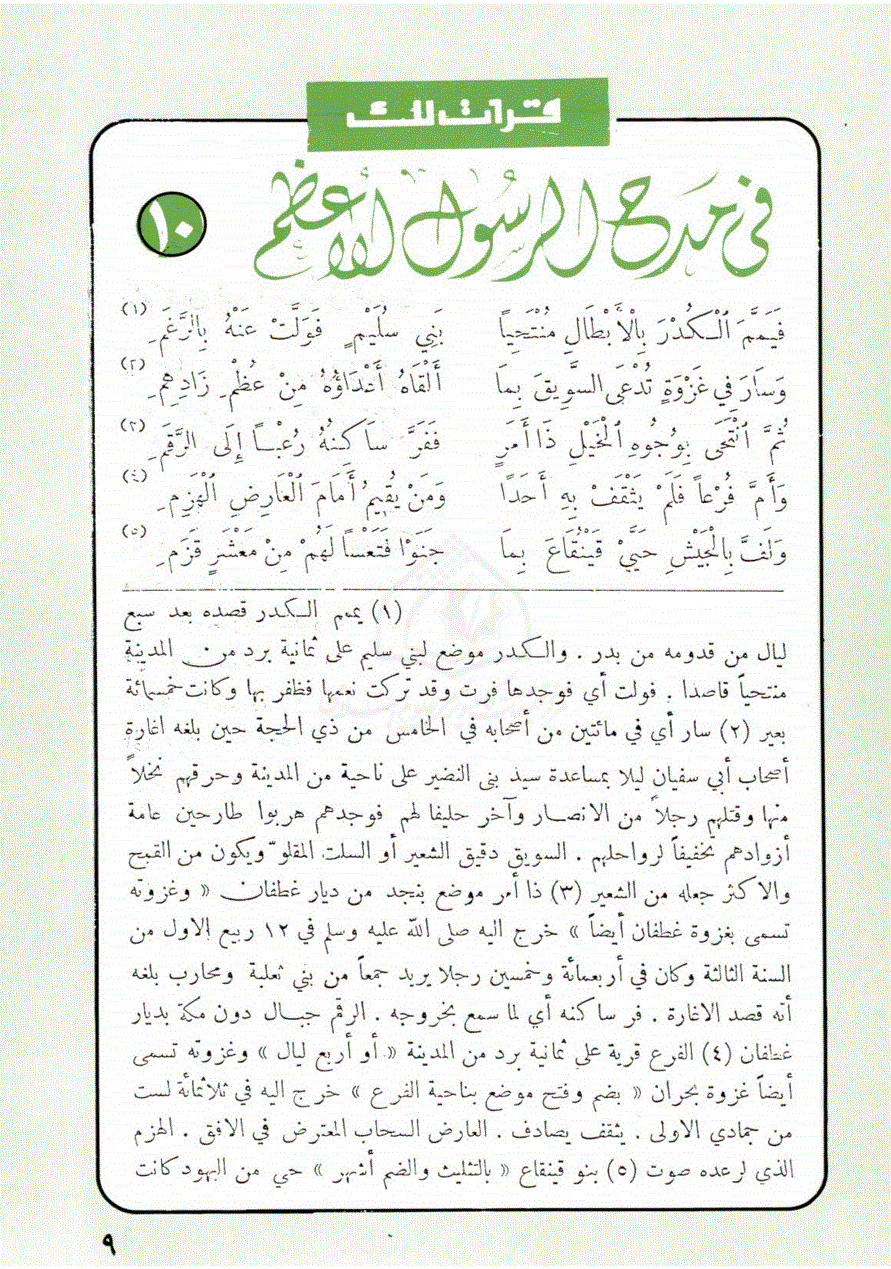 قرأت لك
في مدح الرسول الأعظم
١٠
فَيَمَّمَ الْكُدْرَ بِالْأَبْطَالِ مُنْتَحِياً بَنِي سُلَيْمٍ فَوَلَّتْ عَنْهُ بِالرَّغَمِ (١)
وَسَارَ فِي غَزْوَةٍ تُدْعَى السَّوِيقَ بِمَا أَلْقَاهُ أَعْدَاؤُهُ مِنْ عُظْمِ زَادِهِمِ (٢)
ثُمَّ انْتَحَى بِوُجُوهِ الْخَيْلِ ذَا أَمَرٍ فَفَرَّ سَاكِنُهُ رُعْباً إِلَى الرَّقَمِ (٣)
وَأَمَّ فُرْعاً فَلَمْ يَثْقَفْ بِهِ أَحَدًا وَمَنْ يُقِيمُ أَمَامَ الْعَارِضِ الْهَزِمِ (٤)
وَلَفَّ بِالْجَيْشِ حَيَّيْ قَيْنُقَاعَ بِمَا جَنَوْا فَتَعْساً لَهُمْ مِنْ مَعْشَرٍ قَزَمِ (٥)
(١) يمم الكدر قصده بعد سبع
ليال من قدومه من بدر . والكدر موضع لبني سليم على ثمانية برد من المدينة
منتحياً قاصدا . فولت أي فوجدها فرت وقد تركت نعمها فظفر بها وكانت خمسمائة
بعير (٢) سار أي في مائتين من أصحابه في الخامس من ذي الحجة حين بلغه اغارة
أصحاب أبي سفيان ليلا بمساعدة سيد بنى النضير على ناحية من المدينة وحرقهم نخلاً
منها وقتلهم رجلاً من الانصار وآخر حليفا لهم فوجدهم هربوا طارحين عامة
أزوادهم تخفيفاً لرواحلهم . السويق دقيق الشعير أو السلت المقلوّ ويكون من القمح
والاكثر جعله من الشعير (٣) ذا أمر موضع بنجد من ديار غطفان « وغزوته
تسمى بغزوة غطفان أيضاً » خرج اليه صلى الله عليه وسلم في ١٢ ربيع الاول من
السنة الثالثة وكان في أربعمائة وخمسين رجلا يريد جمعاً من بني ثعلبة ومحارب بلغه
أنه قصد الاغارة . فر ساكنه أي لما سمع بخروجه . الرقم جبال دون مكة بديار
غطفان (٤) الفرع قرية على ثمانية برد من المدينة « أو أربع ليال » وغزوته تسمى
أيضاً غزوة بحران « بضم وفتح موضع بناحية الفرع » خرج اليه في ثلاثمائة لست
من جمادي الاولى . يثقف يصادف . العارض السحاب المعترض في الافق . الهزم
الذي لرعده صوت (٥) بنو قينقاع « بالتثليث والضم أشهر » حي من اليهود كانت
٩